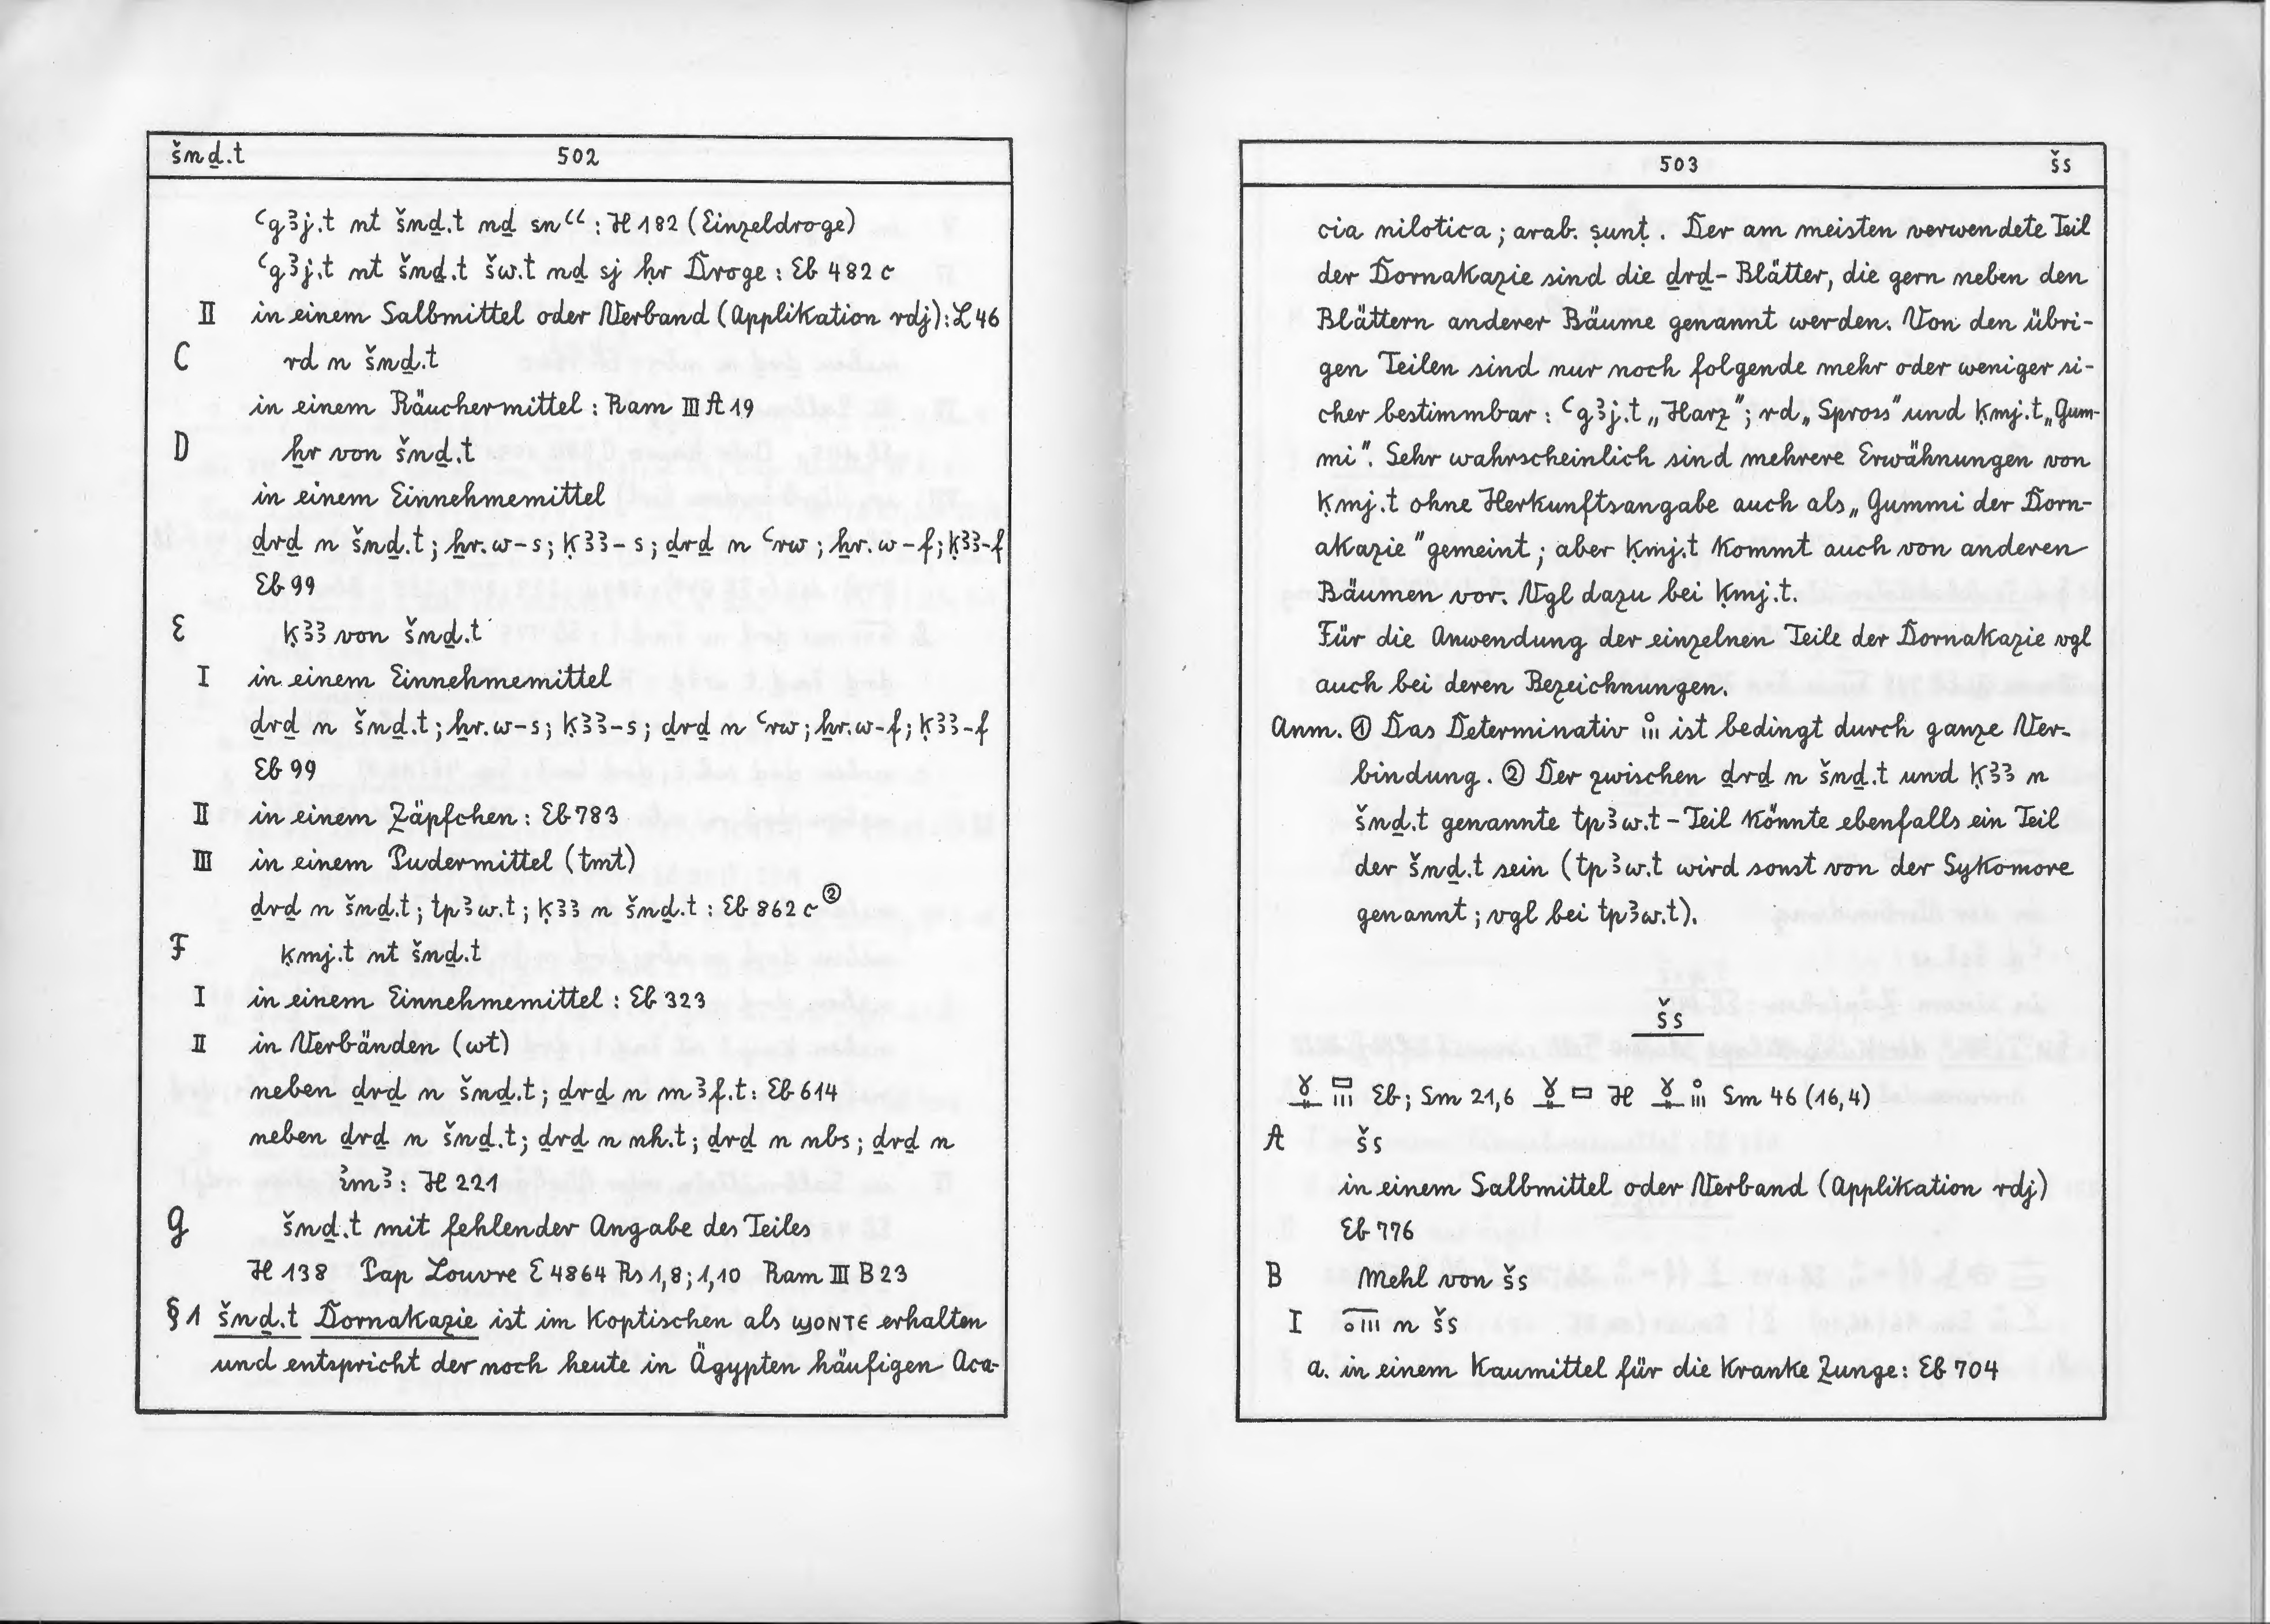 šnḏ.t 502
ꜥgꜣj.t nt šnḏ.t nḏ sn“ : H 182 (Einzeldroge)
ꜥgꜣj.t nt šnḏ.t šw.t nḏ sj ḥr Droge : Eb 482 c
II in einem Salbmittel oder Verband (Applikation rdj): L 46
C rd n šnḏ.t
in einem Räuchermittel : Ram III A 19
D ẖr von šnḏ.t
in einem Einnehmemittel
ḏrḏ n šnḏ.t ; ẖr.w-s ; ḳꜣꜣ-s ; ḏrḏ n ꜥrw ; ẖr.w-f ; ḳꜣꜣ-f
Eb 99
E ḳꜣꜣ von šnḏ.t
I in einem Einnehmemittel
ḏrḏ n šnḏ.t ; ẖr.w-s ; ḳꜣꜣ-s ; ḏrḏ n ꜥrw ; ẖr.w-f ; ḳꜣꜣ-f
Eb 99
II in einem Zäpfchen : Eb 783
III in einem Pudermittel (tmt)
ḏrḏ n šnḏ.t ; tpꜣw.t ; ḳꜣꜣ n šnḏ.t : Eb 862 c ②
F ḳmj.t nt šnḏ.t
I in einem Einnehmemittel : Eb 323
II in Verbänden (wt)
neben ḏrḏ n šnḏ.t ; ḏrḏ n mꜣf.t : Eb 614
neben ḏrḏ n šnḏ.t ; ḏrḏ n nh.t ; ḏrḏ n nbs ; ḏrḏ n
ꞽmꜣ : H 221
G šnḏ.t mit fehlender Angabe des Teiles
H 138 Pap Louvre E 4864 Rs 1,8 ; 1,10 Ram III B 23
§ 1 šnḏ.t Dornakazie ist im Koptischen als ϣⲟⲛⲧⲉ erhalten
und entspricht der noch heute in Ägypten häufigen Aca-
503 šs
cia nilotica ; arab. ṣunṭ . Der am meisten verwendete Teil
der Dornakazie sind die ḏrḏ-Blätter, die gern neben den
Blättern anderer Bäume genannt werden. Von den übri-
gen Teilen sind nur noch folgende mehr oder weniger si-
cher bestimmbar : ꜥgꜣj.t „Harz“ ; rd „Spross“ und ḳmj.t „Gum-
mi“. Sehr wahrscheinlich sind mehrere Erwähnungen von
ḳmj.t ohne Herkunftsangabe auch als „Gummi der Dorn-
akazie“ gemeint ; aber ḳmj.t kommt auch von anderen
Bäumen vor. Vgl dazu bei ḳmj.t.
Für die Anwendung der einzelnen Teile der Dornakazie vgl
auch bei deren Bezeichnungen.
Anm. ① Das Determinativ ist bedingt durch ganze Ver-
bindung. ② Der zwischen ḏrḏ n šnḏ.t und ḳꜣꜣ n
šnḏ.t genannte tpꜣw.t-Teil könnte ebenfalls ein Teil
der šnḏ.t sein (tpꜣw.t wird sonst von der Sykomore
genannt ; vgl bei tpꜣw.t).
šs
Eb ; Sm 21,6 H Sm 46 (16,4)
A šs
in einem Salbmittel oder Verband (Applikation rdj)
Eb 776
B Mehl von šs
I n šs
a. in einem Kaumittel für die kranke Zunge : Eb 704